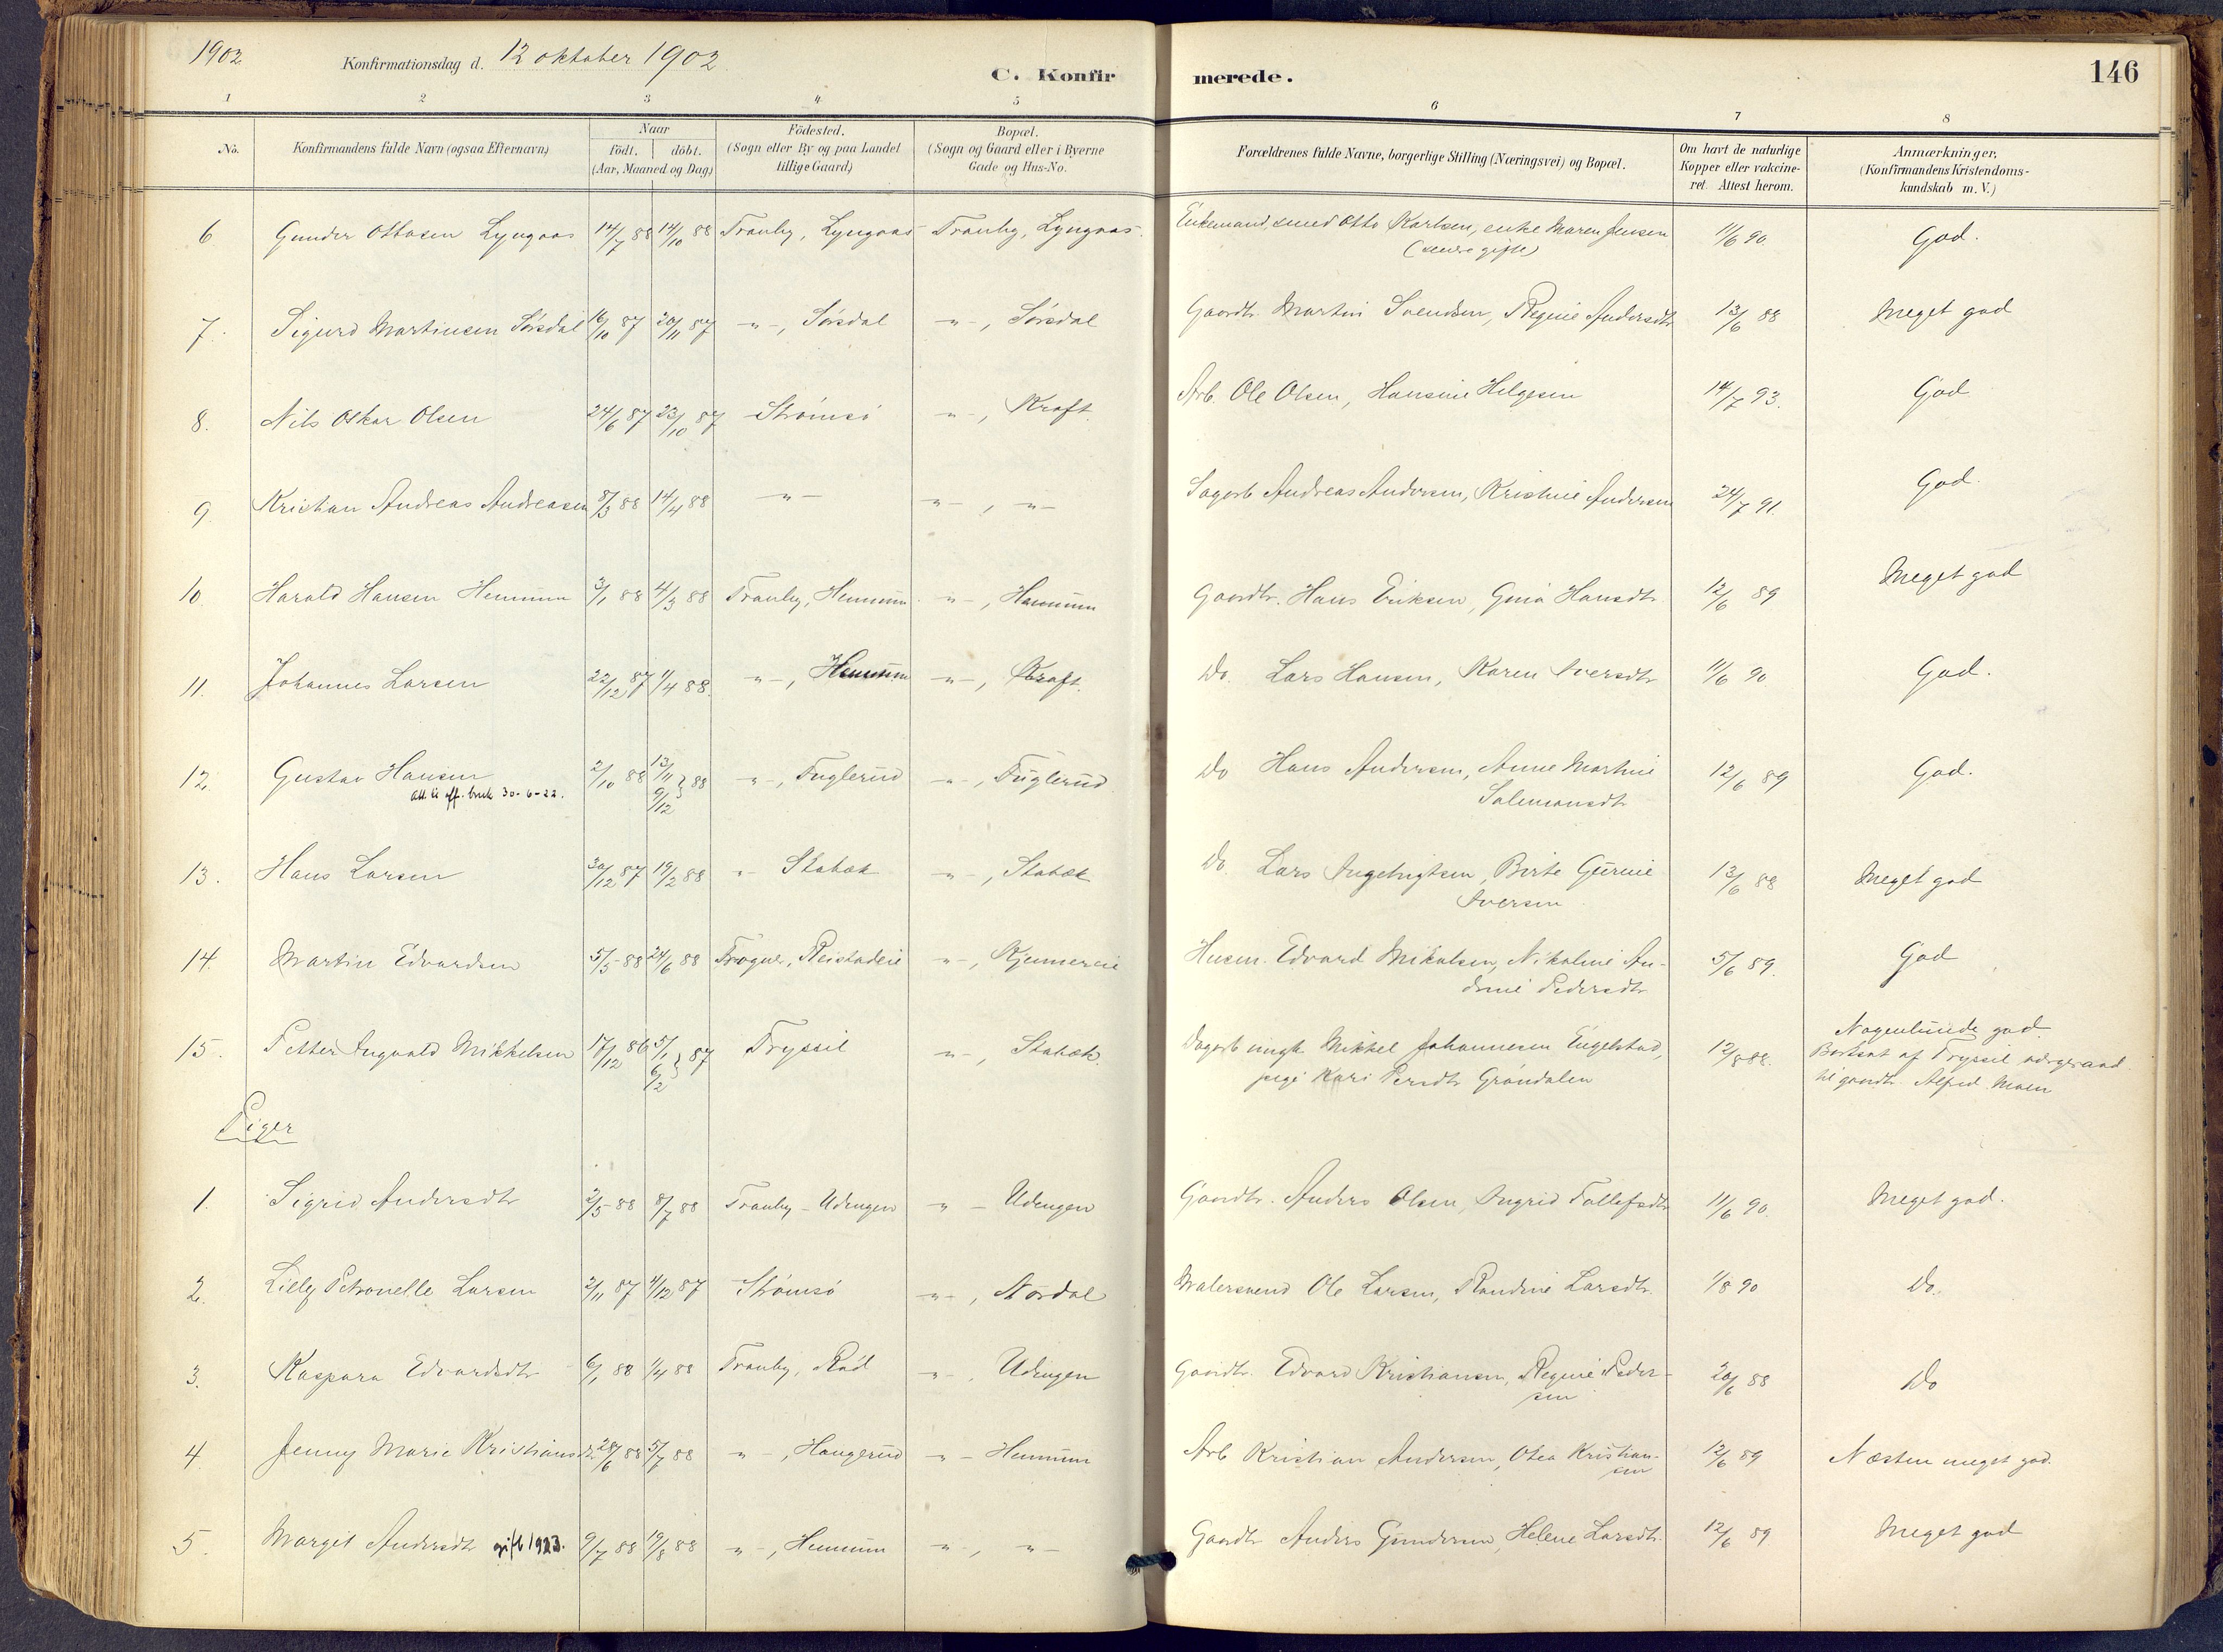 1902
Konfirmationsdag d. 12 oktober 1902
C. Konfirmerede.
146
1 2 3 4 5 6 7 8
No.
Konfirmandens fulde Navn (ogsaa Efternavn)
Naar
födt. döbt.
(Aar, Maaned og Dag)
Födested.
(Sogn eller By og paa Landet
tillige Gaard)
Bopæl.
(Sogn og Gaard eller i Byerne
Gade og Hus-No.
Forældrenes fulde Navne, borgerlige Stilling (Næringsvei) og Bopæl.
Om havt de naturlige
Kopper eller vakcine-
ret. Attest herom.
Anmærkninger,
(Konfirmandens Kristendoms-
kundskab m. V.)
6 Gunder Ottosen Lyngaas 14/7 88 14/10 88 Tranby, Lyngaas Tranby, Lyngaas Enkemand, smed Otto Karlsen, enke Maren Jensen 11/6 90. God.
7. Sigurd Martinsen Sørsdal 16/10 87 20/11 87 -"-, Sørsdal -"-, Sørsdal Gaardbr. Martin Svendsen, Regine Andersdtr 13/6 88 Meget god
8. Nils Oskar Olsen 24/6 87 23/10 87 Strömsö -"-, Kraft Arb. Ole Olsen, Hansine Helgesen 14/7 93. God
9. Kristian Andreas Andreasen 8/3 88 14/4 88 -"- -"-, -"- Sagarb Andreas Andersen, Kristine Andersen 24/7 91. God.
10 Harald Hansen Hennum 3/1 88 4/3 88 Tranby, Hennum -"-, Hennum Gaardbr. Hans Eriksen, Gina Hansdtr 12/6 89 Meget god
11. Johannes Larsen 22/12 87 1/4 88. -"-, Hennum -"-, Kraft. Do. Lars Hansen, Karen Iversdtr 11/6 90 God.
12. Gustav Hansen 2/10 88 13/11 9/12 } 88 -"-, Fuglerud -"-, Fuglerud Do Hans Andersen, Anne Martine 12/6 89 God.
att. til off. bruk 30-6-22.
Salemonsdtr
13. Hans Larsen 30/12 87 19/2 88 -"- Stabæk -"-, Stabæk Do. Lars Ingebrigtsen, Birte Gurine 13/6 88 Meget god
Iversen
14. Martin Edvardsen 5/5 88 24/6 88 Frogner, Reistadeie -"-, Kjennereie Husm. Edvard Mikalsen, Nikoline An- 5/6 89. God
drine Pedersdtr
15. Petter Ingvald Mikkelsen 17/12 86 5/1 6/2 } 87 Tryssil -"-, Stabæk. Dagarb ungk. Mikkel Johannesen Engelstad, 12/8 88. Nogenlunde god.
pige Kari Persdtr Gröndalen
Bortsat af Tryssil værgeraad
til gaardbr. Alfred Moen
Piger
1. Sigrid Andersdtr 2/5 88 8/7 88 Tranby - Udengen " - Udengen Gaardbr. Anders Olsen, Ingrid Tollefsdtr 11/6 90. Meget god.
2. Lilly Petronelle Larsen 2/11 87 4/12 87 Strömsö -"-, Nordal Malersvend Ole Larsen, Randine Larsdtr. 1/8 90 Do.
3. Kaspara Edvardsdtr 6/1 88 1/4 88 Tranby, Röd -"-, Udengen Gaardbr. Edvard Kristiansen, Regine Peder- 20/6 88 Do
sen
4 Jenny Marie Kristiansdtr 28/6 88 5/7 88 "-, Haugerud " - Hennum Arb Kristian Andersen, Otea Kristian- 12/6 89 Næsten meget god.
sen
5. Margit Andersdtr gift 1923. 9/7 88 19/8 88 "-, Hennum -"-, -"- Gaardbr Anders Gundersen, Helene Larsdtr. 12/6 89 Meget god